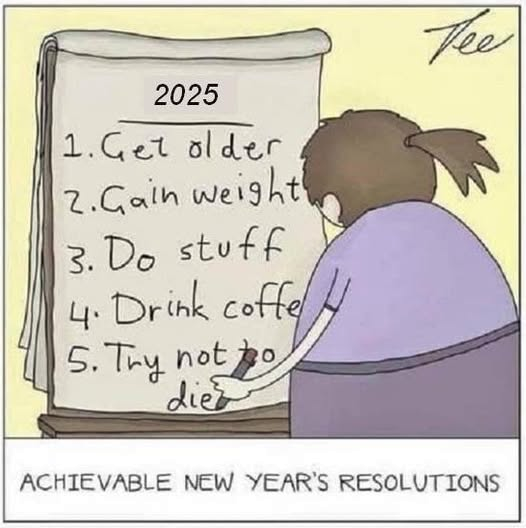 Tee
2025
1. Get older
2. Gain weight
3. Do stuff
4. Drink coffe
5. Try not to
die
ACHIEVABLE NEW YEAR'S RESOLUTIONS